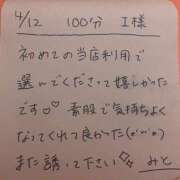 4/12 100分 I様
初めての当店利用で
選んでくださって嬉しかった
です♡♡ 素股で気持ちよく
なってくれて良かった(o'ω'o)
また誘って下さい みと